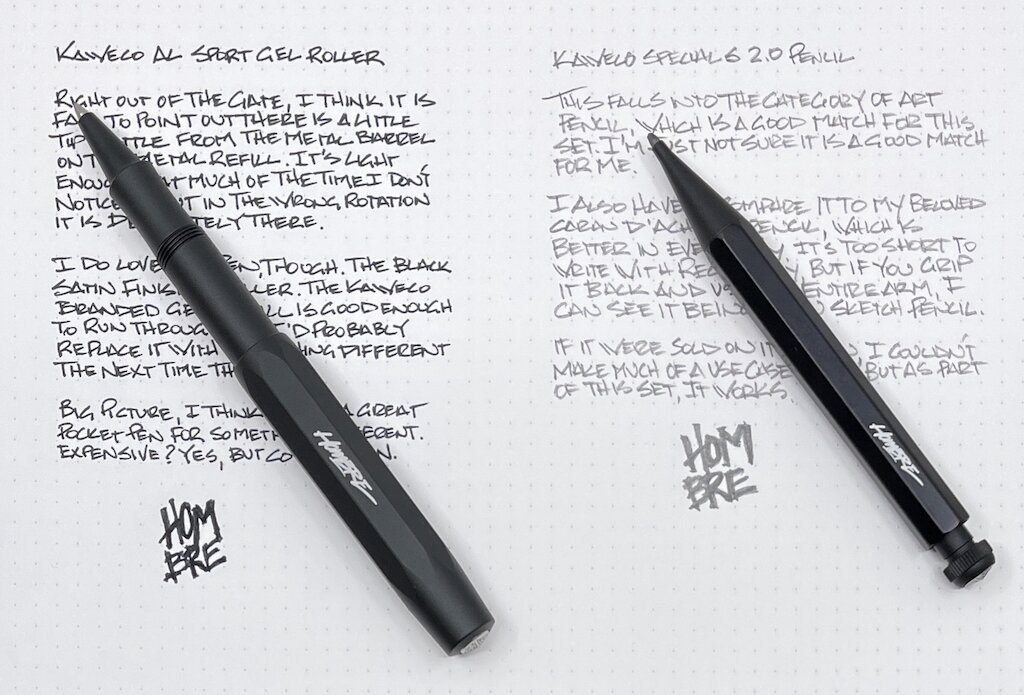 KAWECO AL SPORT GEL ROLLER
RIGHT OUT OF THE GATE, I THINK IT IS
TO POINT OUT THERE IS A LITTLE
TIP FROM THE METAL BARREL
METAL REFILL. IT'S LIGHT
MUCH OF THE TIME I DON'T
NOTICE IN THE WRONG ROTATION
IT IS THERE.
I DO LOVE THOUGH. THE BLACK
SATIN THE KAWECO
BRANDED IS GOOD ENOUGH
TO RUN I'D PROBABLY
REPLACE IT WITH DIFFERENT
THE NEXT TIME
BIG PICTURE, I THINK A GREAT
POCKET PEN FOR
EXPENSIVE? YES, BUT
HOM
BRE
HOMBRE
KAWECO SPECIAL S 2.0 PENCIL
THIS FALLS INTO THE CATEGORY OF ART
PENCIL, WHICH IS A GOOD MATCH FOR THIS
SET. I'M NOT SURE IT IS A GOOD MATCH
FOR ME.
I ALSO HAVE COMPARE IT TO MY BELOVED
CARAN D'ACHE PENCIL, WHICH IS
BETTER IN IT'S TOO SHORT TO
WRITE WITH BUT IF YOU GRIP
IT BACK AND ENTIRE ARM, I
CAN SEE IT BEING SKETCH PENCIL.
IF IT WERE SOLD ON I COULDN'T
MAKE MUCH OF A USE CASE BUT AS PART
OF THIS SET, IT WORKS.
HOM
BRE
HOMBRE